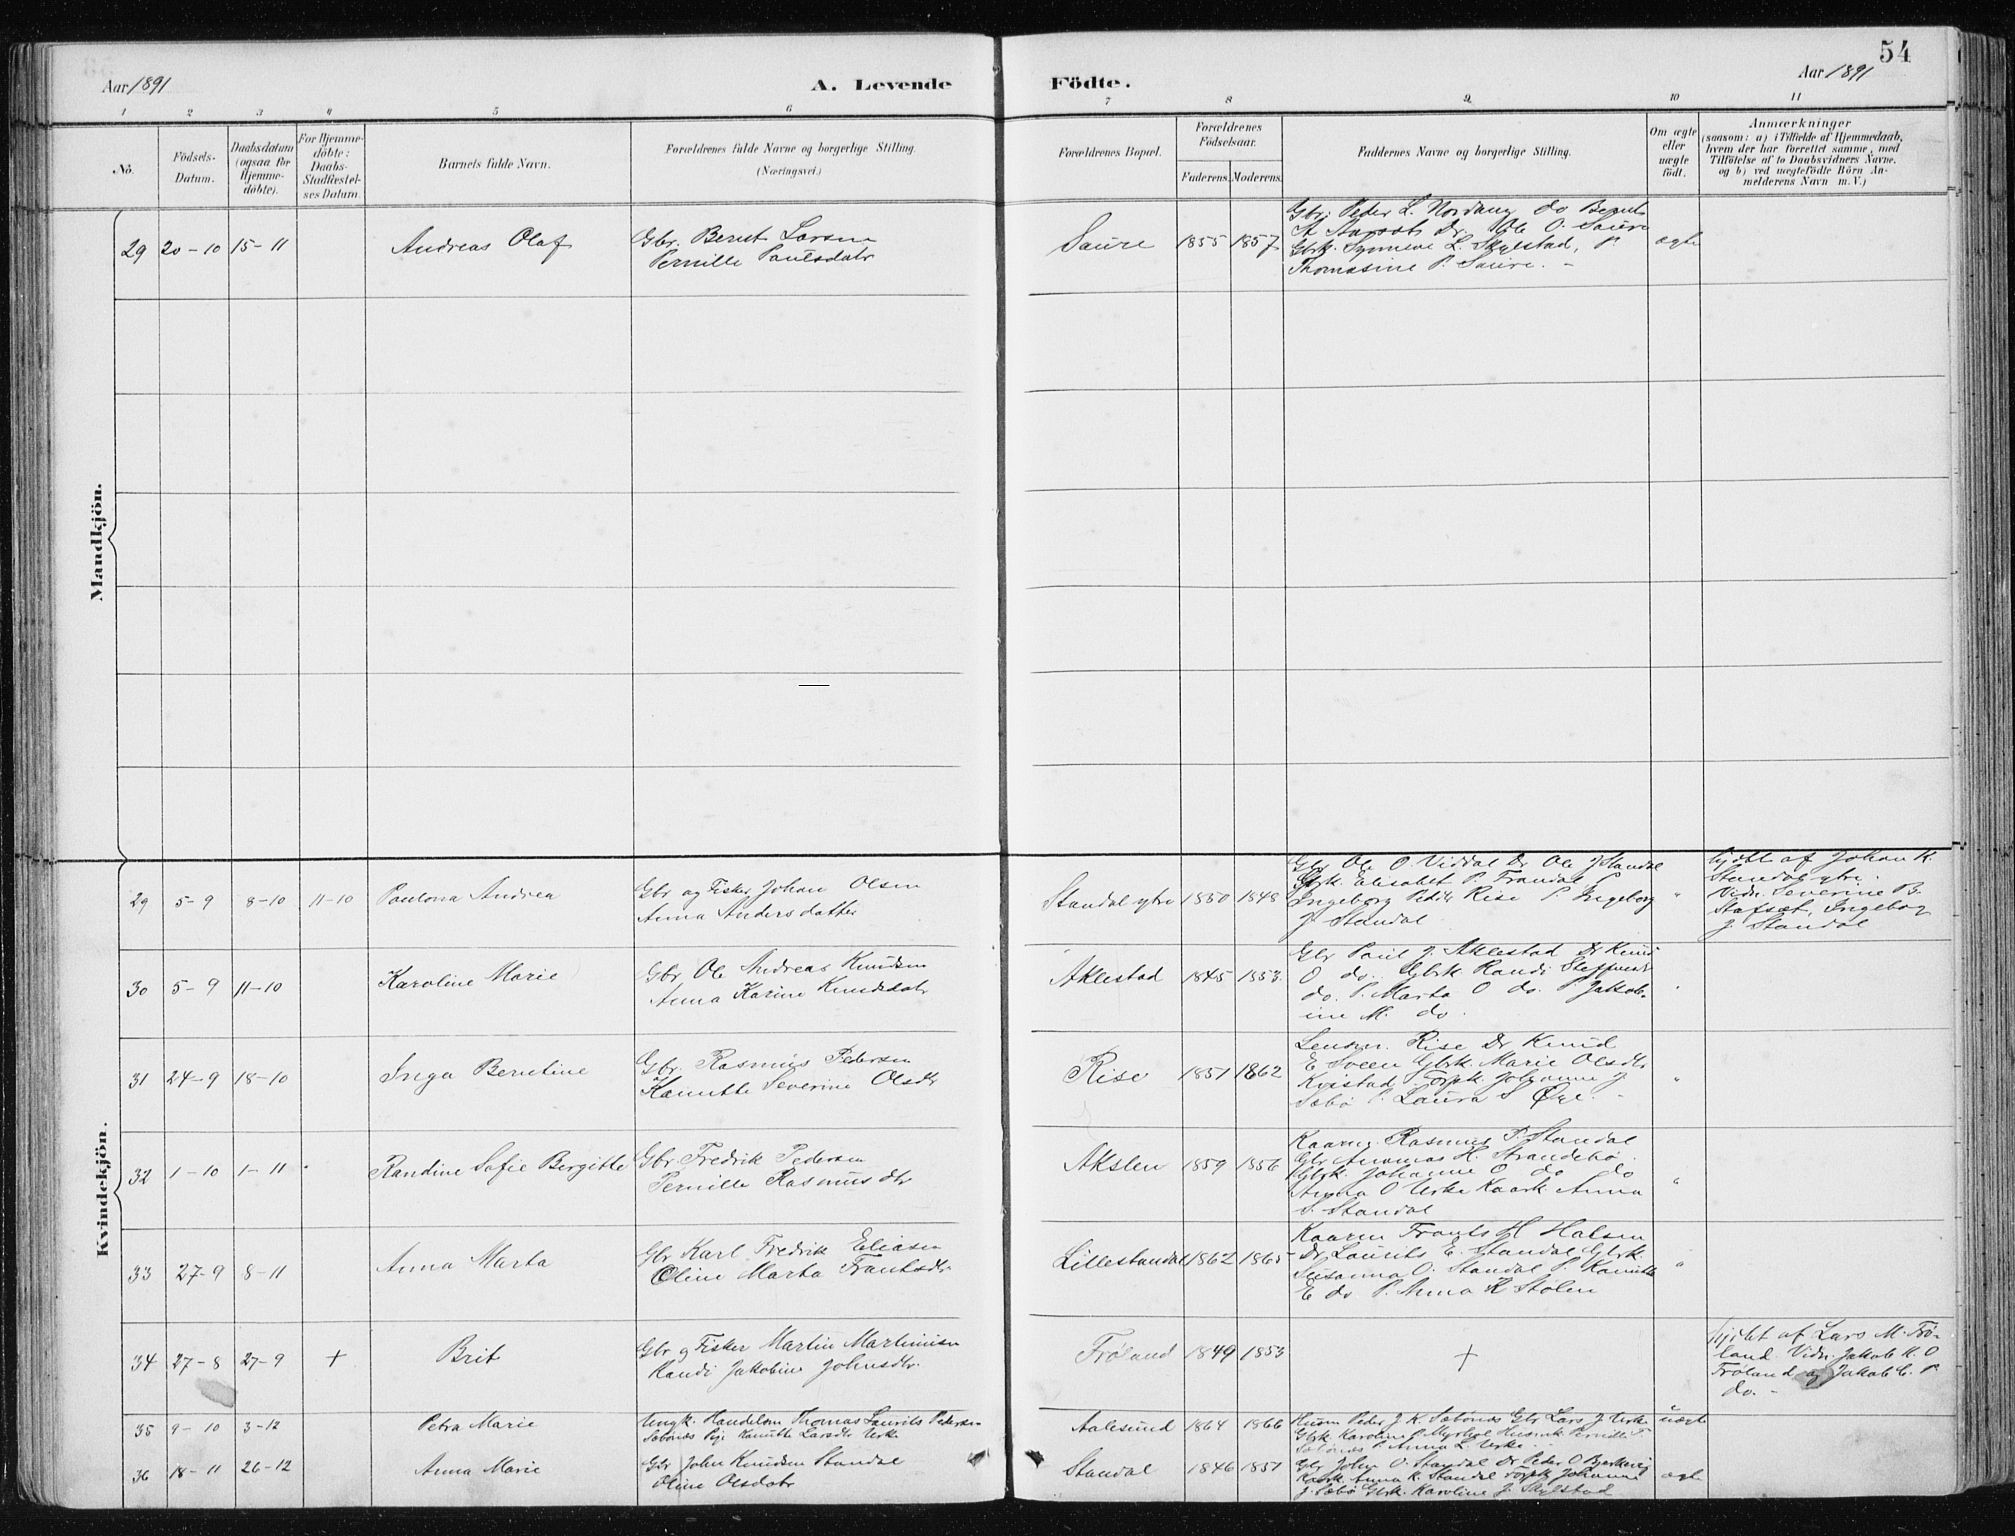 54
Aar 1891
A. Levende
Födte.
Aar 1891
1 2 3 4 5 6 7 8 9 10 11
No.
Födsels-
Datum.
Daabsdatum
(ogsaa for
Hjemme-
döbte).
For Hjemme-
döbte:
Daabs-
Stadfæstel-
ses Datum.
Barnets fulde Navn.
Forældrenes fulde Navne og borgerlige Stilling.
(Næringsvei.)
Forældrenes Bopæl.
Forældrenes
Födselsaar.
Faderens. Moderens.
Faddernes Navne og borgerlige Stilling.
Om ægte
eller
uægte
födt.
Anmærkninger
(saasom: a) i Tilfælde af Hjemmedaab,
hvem der har forrettet samme, med
Tilföielse af to Daabsvidners Navne,
og b) ved uægtefödte Börn An-
melderens Navn m. V.)
Mandkjön.
29 20-10 15-11
Andreas Olaf
Gbr. Bernt Larsen
Pernille Paulsdatr
Saure
1855 1857
Gbr. Peder L. Nordang do Bernt
A Aarseth Dr. Ole O. Saure
Gbrk. Synneve L. Skylstad, P.
Thomasine P. Saure. -
ægte
Kvindekjön.
29 5-9 8-10 11-10
Paulona Andrea
Gbr og Fisker Johan Olsen
Anna Andersdatter
Standal ytre
1850 1848
Gbr Ole O. Viddal Dr Ole J Standal
Gbrk. Elisabet P. Frandal P
Ingeborg Pedtr Rise P. Ingeborg
J. Standal
"
hjdbt af Johan K.
Standal ytre.
Vidn. Severine B.
Stafsæt, Ingebog
J. Standal
30 5-9 11-10
Karoline Marie
Gbr Ole Andreas Knudsen
Anna Karine Knudsdatr
Aklestad
1845 1853.
Gbr Paul J. Aklestad Dr Knud
O do. Gbrk Randi Steffensdr
do. P. Marta O do. P Jakob-
ine M. do.
"
31 24-9 18-10
Inga Berntine
Gbr. Rasmus Pedersen
Kanutte Severine Olsdtr
Rise
1851 1862
Lensm. Rise Dr Knud
E Sveen Gbrk. Marie Olsdtr
Kvistad Forpk. Johanne J.
Sæbø P. Laura S Øye. -
"
32 1-10 1-11
Randine Sofie Bergitte
Gbr Fredrik Pedersen
Pernille Rasmusdtr
Akslen
1859 1856
Kaarm. Rasmus P. Standal
Gbr H. Strandebø.
Gbrk Johanne O do do
Anna O Urke Kaark Anna
S. Standal
"
33 27-9 8-11
Anna Marta
Gbr Karl Fredrik Eliasen
Oline Marta Frantsdtr
Lillestandal
1862 1865
Kaarm Frants H Halsen
Dr Laurits E. Standal Gbrk.
Susanna O. Standal P. Kanutte
E do P. Anna K Stølen
"
34 27-8 27-9 +
Brit
Gbr og Fisker Martin Martinusen
Randi Jakobine Johnsdtr.
Frøland
1849 1853
+
hjdbt af Lars M. Frø-
land. Vidn. Jakob K. O
Frøland og Jakob E. P.
do. -
35 9-10 3-12
Petra Marie
Ungk. Handelsm Thomas Laurits Pedersen
Sæbønes Pige Kanutte Larsdtr Urke
Aalesund
1864 1866
Husm Peder J. K. Sæbønes Gbr Lars J Urke
Gbrk. Karoline J. Myrhol Husmk Pernille T.
Sæbønes P. Anna L. Urke.
uægte
36 18-11 26-12
Anna Marie
Gbr John Knudsen Standal
Oline Olsdatr
Standal
1846 1851
Gbr John O. Standal Dr Peder O Bjerkvig
Kaark Anna K. Standal Forpk Johanne
J. Sæbø Gbrk. Karoline J. Skylstad
ægte